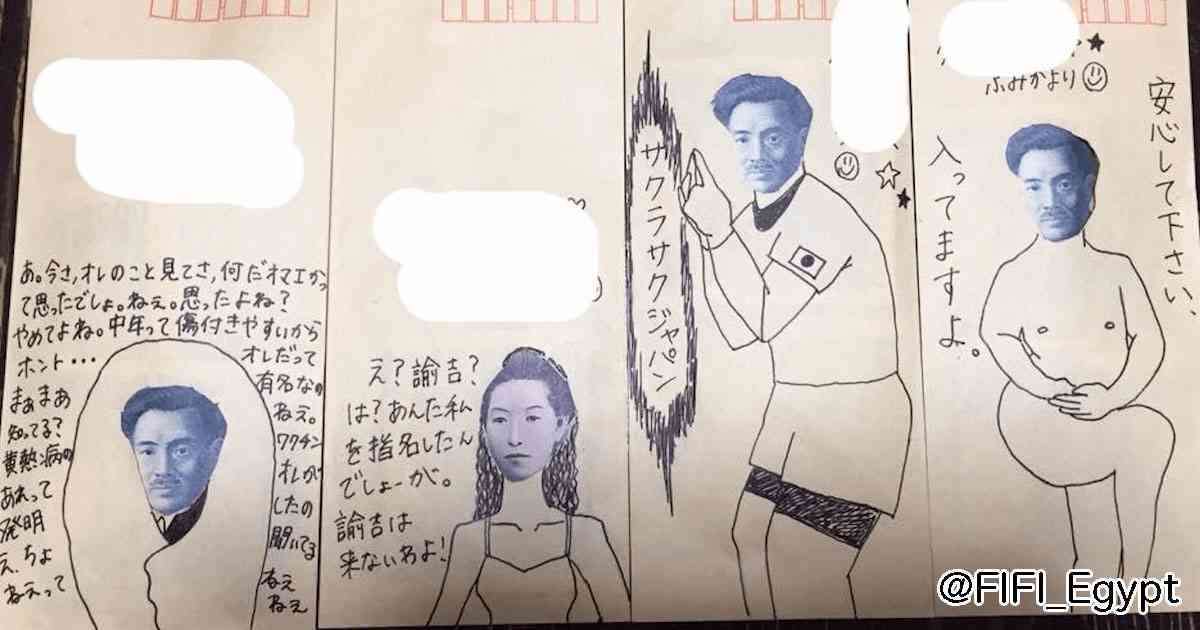 あ。今さ,オレのこと見てさ,何だオマエかっ
て思ったでしょ。ねぇ。思ったよね？
やめてよね。中年って傷付きやすいから
ホント・・・ オレだって
まぁまぁ 有名なの
知ってる？ ねぇ。
黄熱病の ワクチン
あれって オレが
発明 したの
え、ちょ 聞いてる
ねえって ねえ
ねえ
え？諭吉？
は？あんた私
を指名したん
でしょーが。
諭吉は
来ないわよ！
サクラサクジャパン
ふみかより
安心して下さい、
入ってますよ。
@FIFI_Egypt